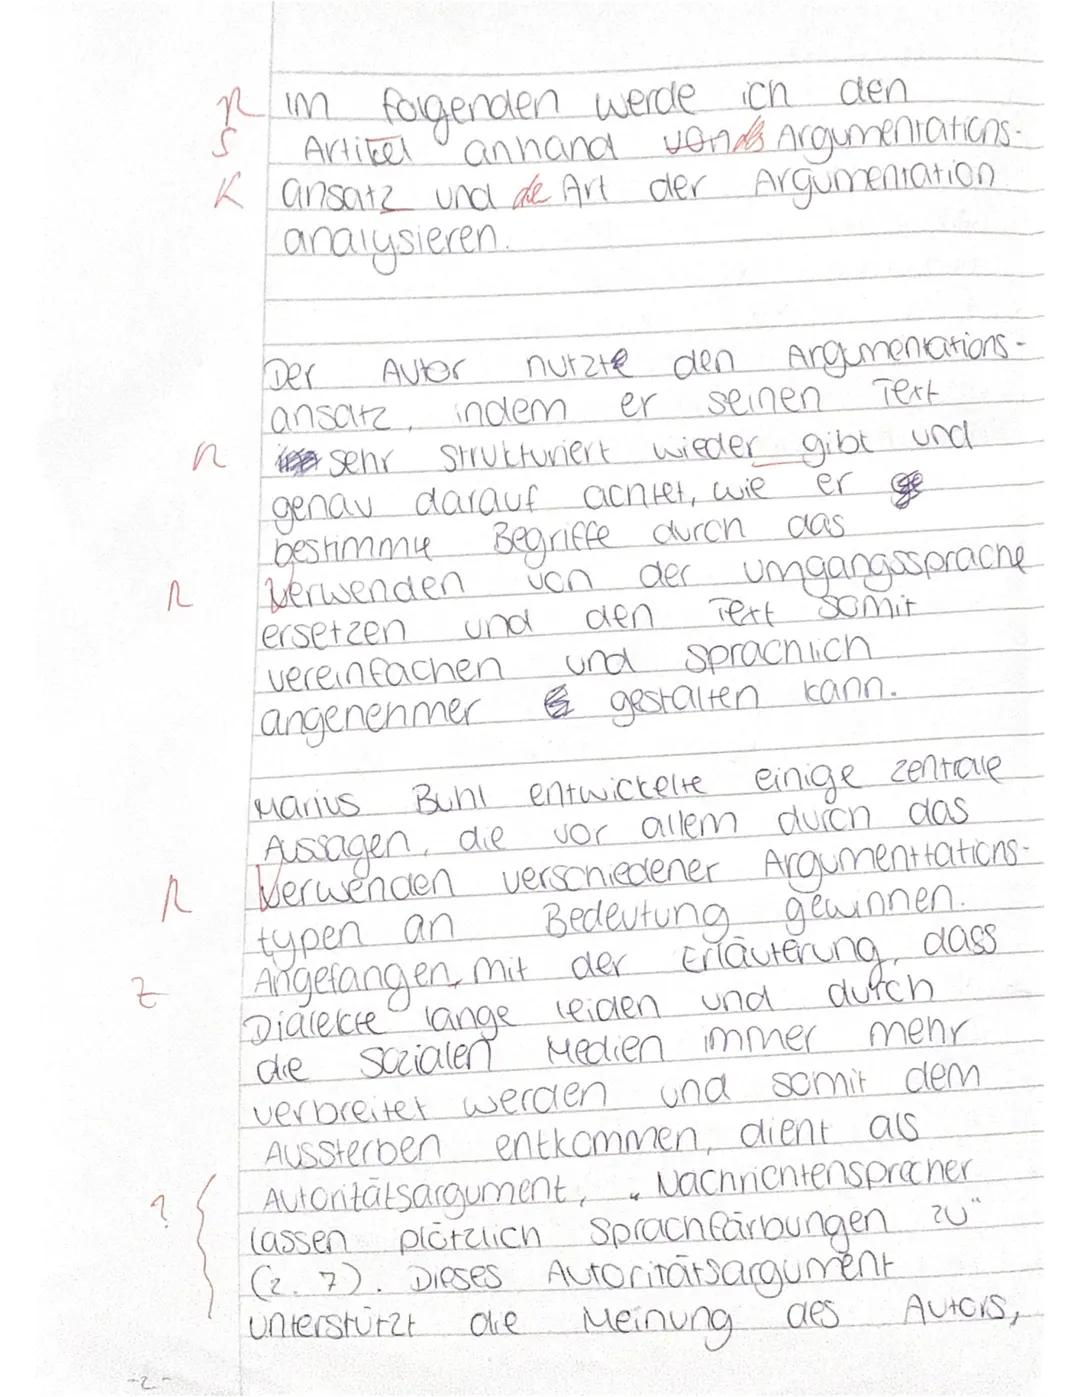 R im folgenden werde ich den
S Artikel anhand von des Argumentations-
K ansatz und die Art der Argumentation
analysieren.
Der Autor nutzte den Argumentations-
ansatz, indem er seinen Text
R sehr strukturiert wieder gibt und
genau darauf achtet, wie er
bestimmte Begriffe durch das
R Verwenden von der Umgangssprache
ersetzen und den Text somit
vereinfachen und sprachlich
angenehmer gestalten kann.
Marius Buhl entwickelte einige zentrale
Aussagen, die vor allem durch das
R Verwenden verschiedener Argumenttations-
typen an Bedeutung gewinnen.
Angefangen, mit der Erläuterung, dass
Z
Dialekte lange leiden und durch
die sozialen Medien immer mehr
verbreitet werden und somit dem
Aussterben entkommen, dient als
Autoritätsargument, „Nachrichtensprecher
? lassen plötzlich Sprachfärbungen zu"
(z. 7). Dieses Autoritätsargument
unterstützt die Meinung des Autors,
-2-